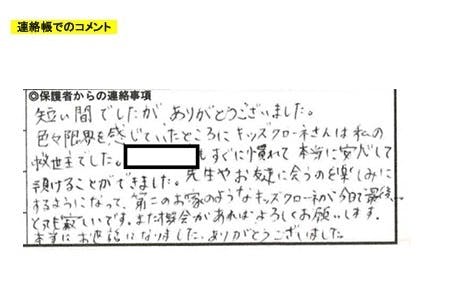 連絡帳でのコメント
◎保護者からの連絡事項
短い間でしたが、ありがとうございました。
色々限界を感じていたところにキッズクローネさんは私の
救世主でした。 もすぐに慣れて本当に安心して
預けることができました。先生やお友達に会うのを楽しみに
するようになって、第二のお家のようなキッズクローネが今日で最後…
とても寂しいです。また機会があればよろしくお願いします。
本当にお世話になりました。ありがとうございました